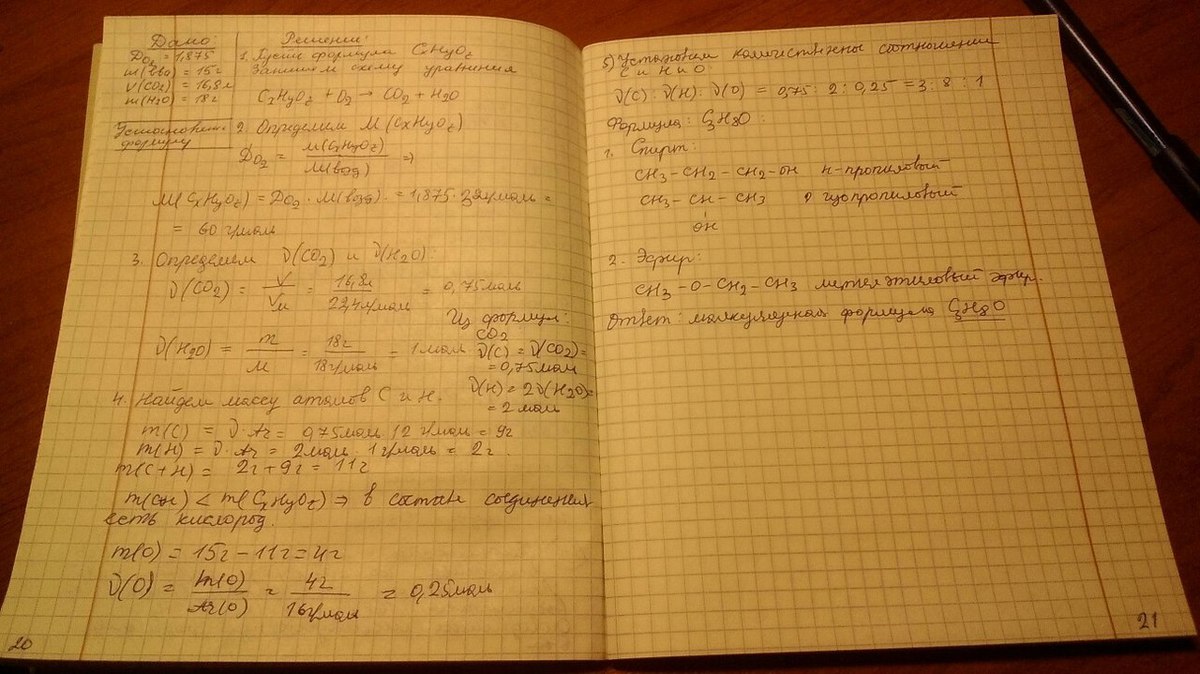 Дано:
D O2 = 1,875
m(в-во) = 15г
V(CO2) = 16,8л
m(H2O) = 18г
Установить:
формулу
Решение:
1. Пусть формула CxHyOz
Запишем схему уравнения
CxHyOz + O2 → CO2 + H2O
2. Определяем M (CxHyOz)
D O2 = M(CxHyOz) / M(возд) ⇒
M(CxHyOz) = D O2 · M(возд) = 1,875 · 32г/моль =
= 60 г/моль
3. Определяем ν(CO2) и ν(H2O):
ν(CO2) = V / Vм = 16,8л / 22,4л/моль = 0,75моль
ν(H2O) = m / M = 18г / 18г/моль = 1 моль
Из формул:
CO2
ν(C) = ν(CO2) =
= 0,75моль
ν(H) = 2ν(H2O) =
= 2 моль
4. Найдем массу атомов C и H.
m(C) = ν · Ar = 0,75моль · 12 г/моль = 9г
m(H) = ν · Ar = 2моль · 1г/моль = 2г.
m(C+H) = 2г + 9г = 11г
m(CH) < m(CxHyOz) ⇒ в составе соединения
есть кислород.
m(O) = 15г – 11г = 4г
ν(O) = m(O) / Ar(O) = 4г / 16г/моль = 0,25моль
20
5) Установим количественные соотношения
C и H и O:
ν(C) : ν(H) : ν(O) = 0,75 : 2 : 0,25 = 3 : 8 : 1
Формула: C3H8O:
1. Спирт:
CH3 – CH2 – CH2 – OH н-пропиловый
CH3 – CH – CH3 изопропиловый
OH
2. Эфир:
CH3 – O – CH2 – CH3 метилэтиловый эфир.
Ответ: молекулярная формула C3H8O
21